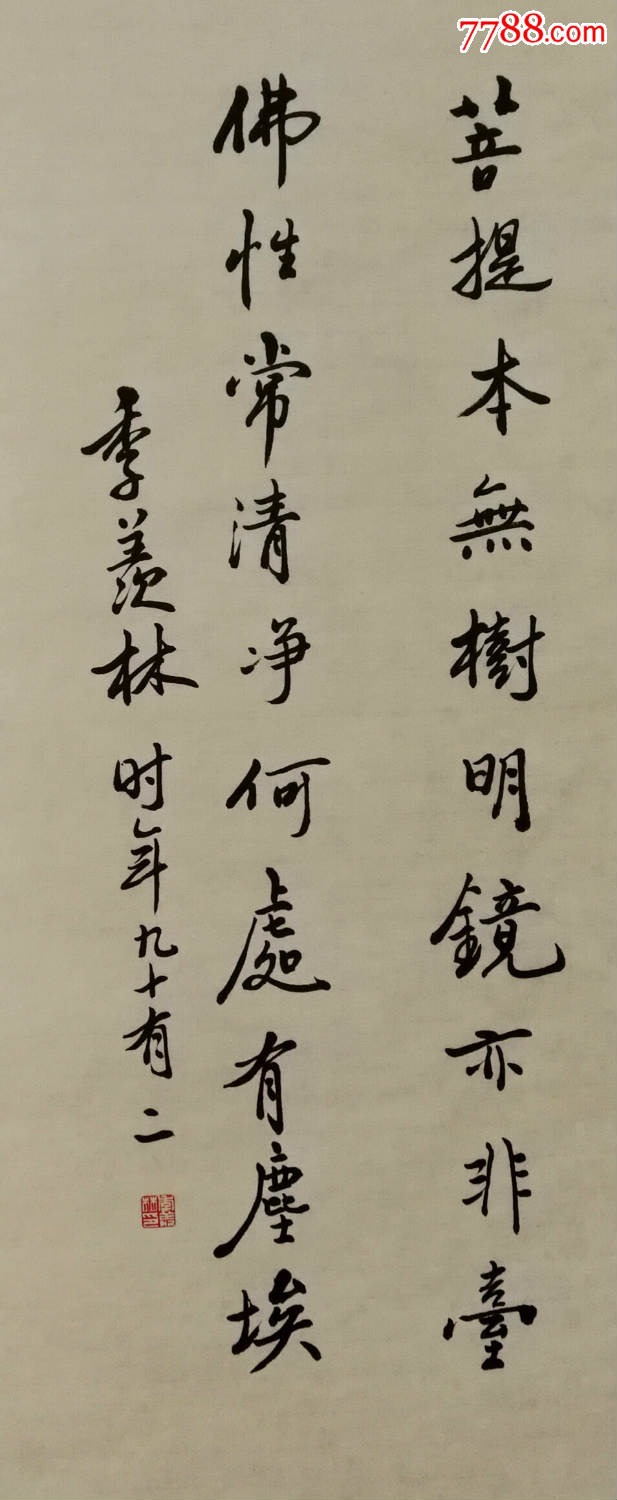 7788.com
菩提本無樹明鏡亦非臺
佛性常清净何處有塵埃
季羨林时年九十有二